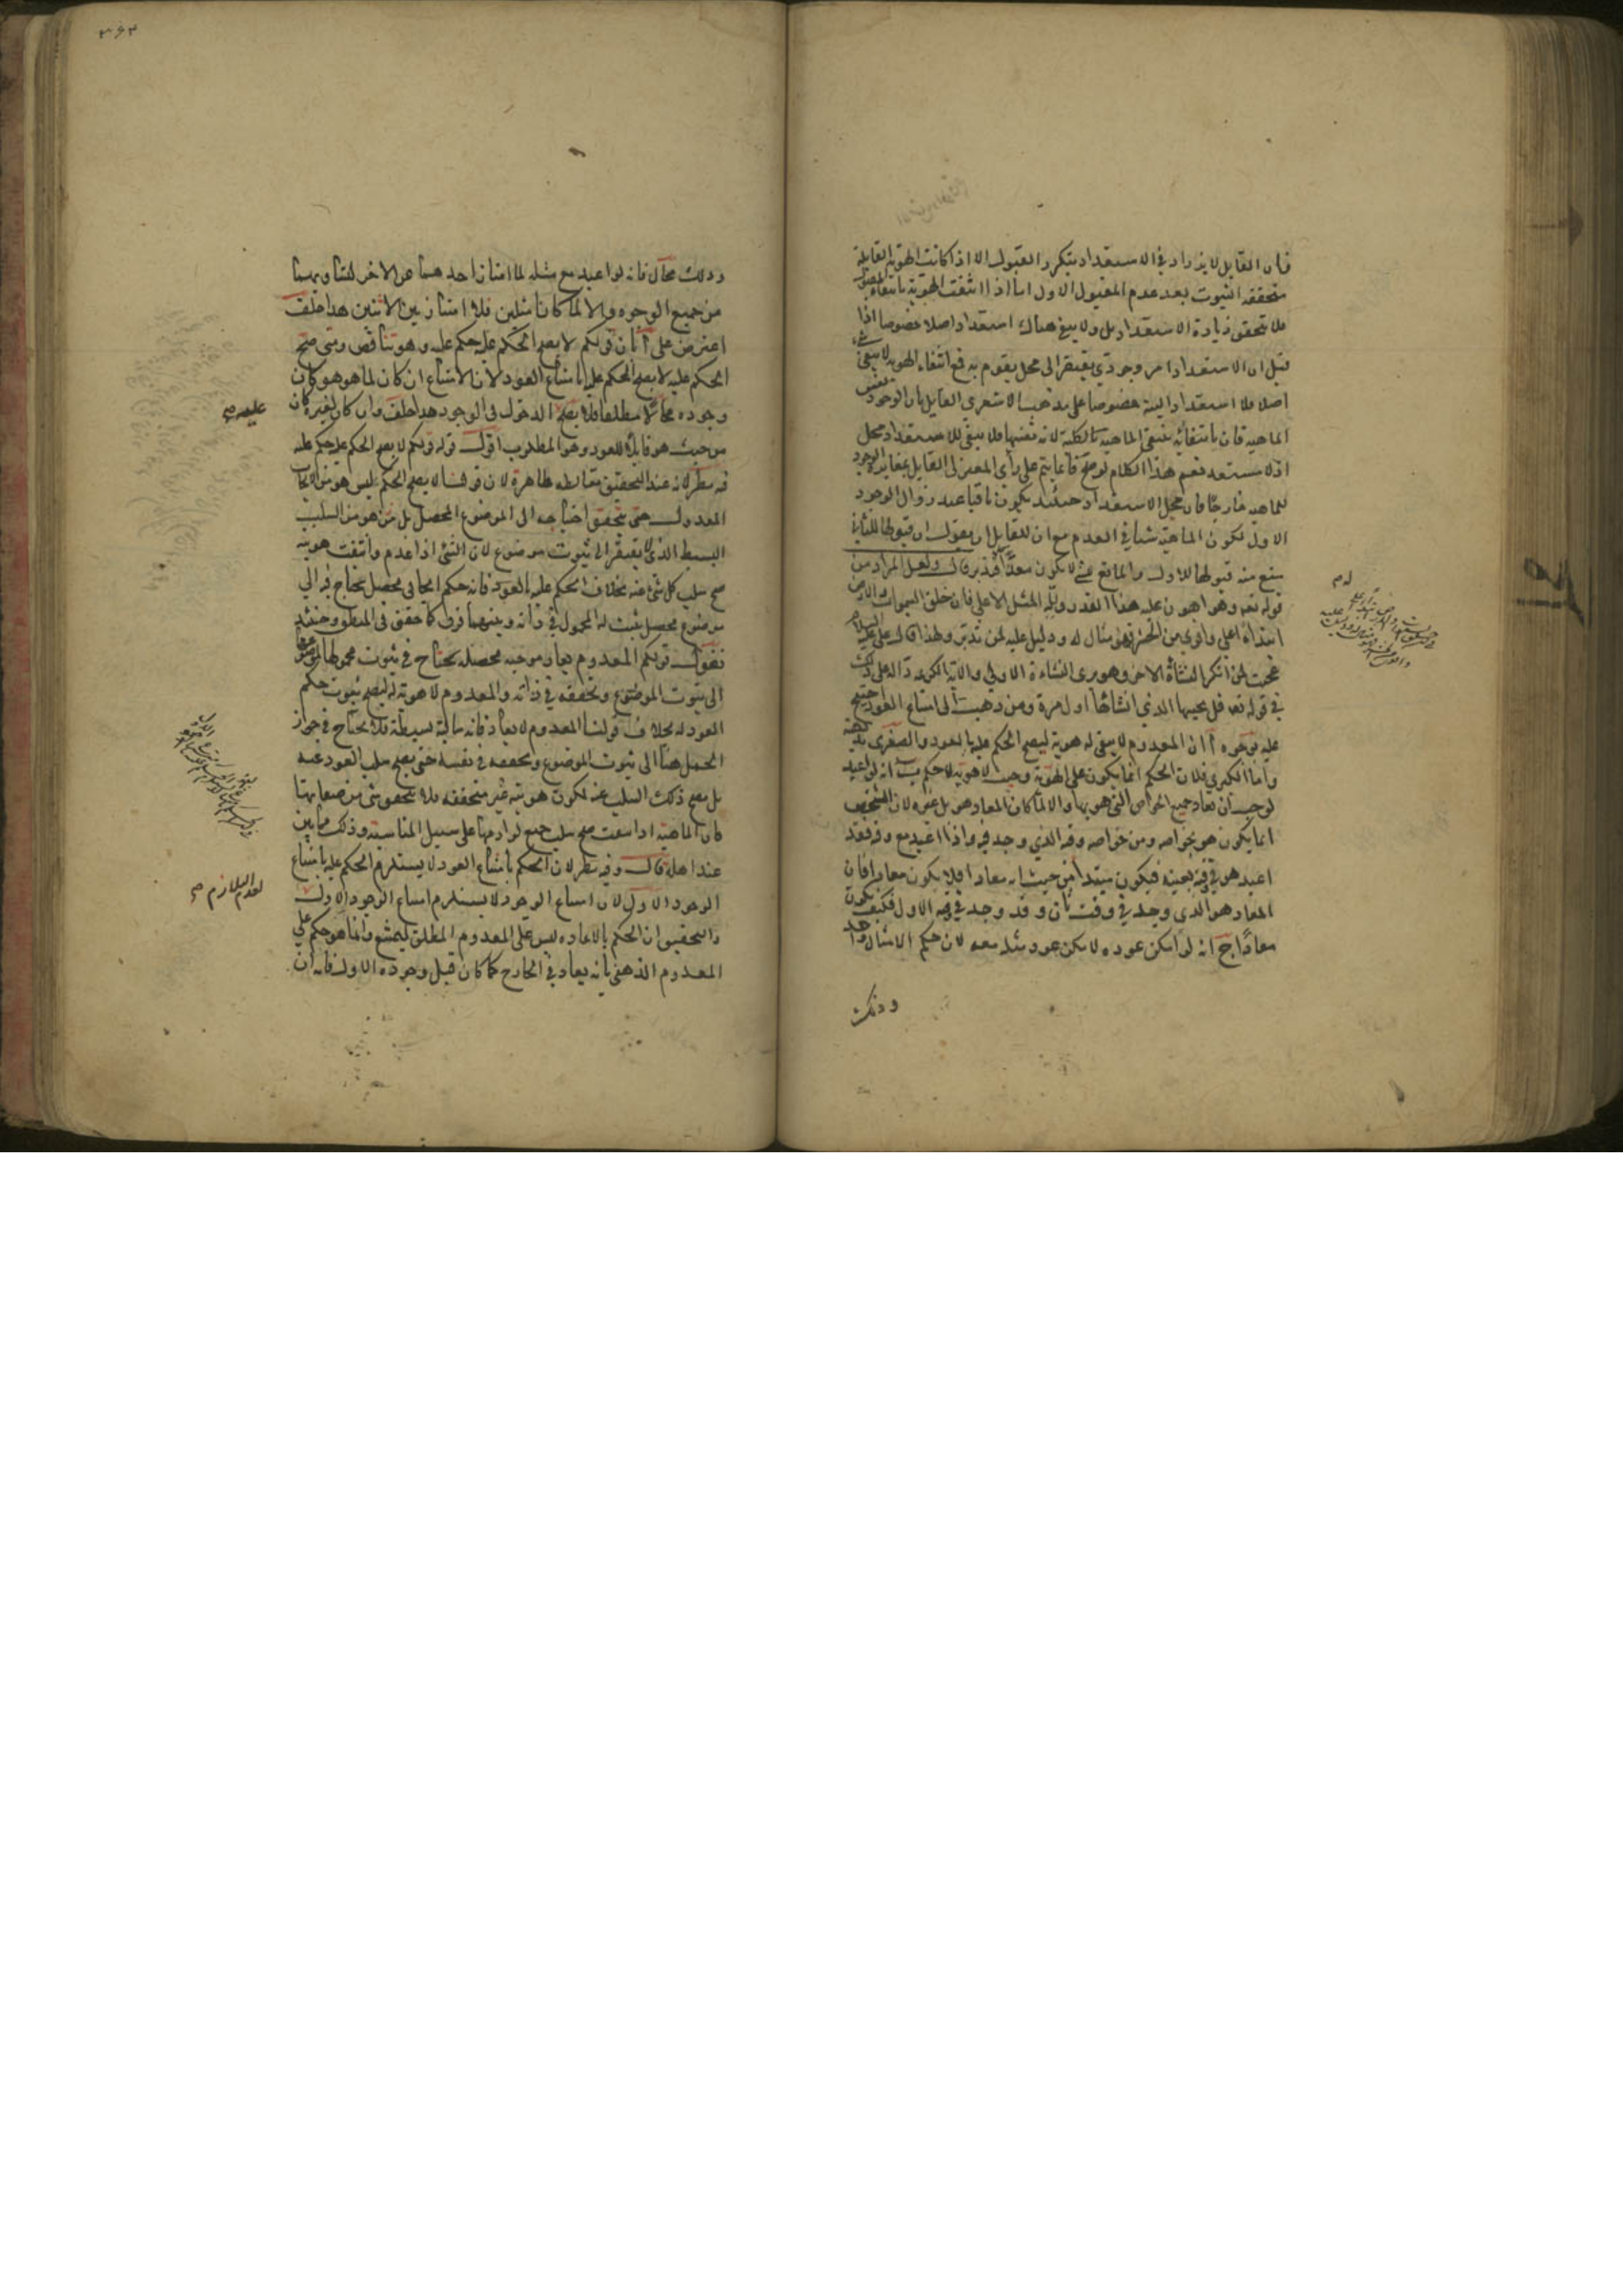 فان القابل لا يزداد في الاستعداد بتكرر القبول الا اذا كانت الهوية القابلة
متحققة الثبوت بعد عدم المقبول الاول اما اذا انتفت الهوية بانتفاء المقبول
فلا يتحقق زيادة الاستعداد بل ولا يبقى هناك استعداد اصلا خصوصا اذا
قيل ان الاستعداد امر وجودي يفتقر الى محل يقوم به فمع انتفاء الهوية لا يبقى شيء
اصلا فلا استعداد البتة خصوصا على مذهب الاشعري القايل بان الوجود نفس
الماهية فان بانتفائه ينتفى الماهية بالكلية لانه نفسها فلا يبقى للاستعداد محل
اذ لا مستعد فنعم هذا الكلام لو صح فانما يتم على رأى المعتزلى القايل بمغايرة الوجود
للماهية خارجا فان محل الاستعداد حينئذ يكون باقيا عند زوال الوجود
الاول لكون الماهية شيئا في العدم مع ان للقايل ان يقول ان قبولها للثاني
يمنع منه قبولها للاول والمانع عن شئ لا يكون معدا فتدبر قال ولعل المراد من
قوله تعه وهو اهون عليه هذا القدر ولله المثل الاعلى فان خلق السموات والارض
ابتداء اعلى واقوى من الحشر فهو مثال له ودليل عليه لمن تدبر ولهذا قال على عليه السلام
عجبت لمن انكر النشأة الاخرى وهو يرى النشاءة الاولى والآية الكريمة دالة على ذلك
في قوله تعه قل يحييها الذي انشاها اول مرة ومن ذهب الى امتناع العود احتج
عليه بوجوه آ ان المعدوم لا يبقى له هوية ليصح الحكم عليه بالعود والصغرى بديهية
واما الكبرى فلان الحكم انما يكون على الهوية وحيث لا هوية لا حكم ب انه لو اعيد
لوجب ان يعاد جميع الخواص التى هو بها والا لما كان المعاد هو بل غيره لان الشخص
انما يكون هو بخواصه ومن خواصه وقته الذي وجد فيه واذا اعيد مع وقته فقد
اعيد هو في وقته بعينه فيكون مبتدأ من حيث انه معاد فلا يكون معادا فان
المعاد هو الذى وجد في وقت ثان وقد وجد في وقته الاول فكيف يكون
معادا ج انه لو امكن عوده لامكن عود مثله معه لان حكم الامثال واحد
وذلك
وذلك محال فانه لو اعيد مع مثله لما امتاز احدهما عن الاخر لتساويهما
من جميع الوجوه والا لما كانا مثلين فلا امتياز بين الاثنين هذا خلف
اعترض على آ بان قولكم لا يصح الحكم عليه حكم عليه وهو تناقض ومتى صح
الحكم عليه لا يصح الحكم عليه بامتناع العود لان الامتناع ان كان لما هو هو كان
وجوده محالا مطلقا فلا يصح الدخول في الوجود هذا خلف وان كان لغيره كان
من حيث هو قابلا للعود وهو المطلوب اقول قوله قولكم لا يصح الحكم عليه حكم عليه
فيه نظر لانه عند التحقيق مغالطة ظاهرة لان قولنا لا يصح الحكم ليس هو من الايجاب
المعدول حتى يتحقق احتياجه الى الموضوع المحصل بل من هو من السلب
البسيط الذي لا يفتقر الى ثبوت موضوع لان الشئ اذا عدم وانتفت هويته
صح سلب كل شئ عنه بخلاف الحكم عليه بالعود فانه حكم ايجابى محصل يحتاج فيه الى
موضوع محصل يثبت له المحمول في ذاته وبينهما فرق كما حقق في المنطق وحينئذ
نقول قولكم المعدوم يعاد موجبة محصلة يحتاج في ثبوت محمولها لموضوعها
الى ثبوت الموضوع وتحققه في ذاته والمعدوم لا هوية له ليصح ثبوت حكم
العود له بخلاف قولنا المعدوم لا يعاد فانه سالبة بسيطة فلا يحتاج في جواز
الحمل هنا الى ثبوت الموضوع وتحققه في نفسه حتى يصح سلب العود عنه
بل يصح ذلك السلب عنه لكون هويته غير متحققة فلا يتحقق شئ من صفاتها
فان الماهية اذا انتفت صح سلب جميع لوازمها على سبيل المناسبة وذلك مما بين
عند اهله قال وفيه نظر لان الحكم بامتناع العود لا يستلزم الحكم عليه بامتناع
الوجود الاول لان امتناع الوجود لا يستلزم امتناع الوجود الاول
والتحقيق ان الحكم بالاعادة ليس على المعدوم المطلق ليمتنع وانما هو حكم على
المعدوم الذهنى بانه يعاد في الخارج كما كان قبل وجوده الاول فانه ان
عليه صح
لعدم التلازم صح